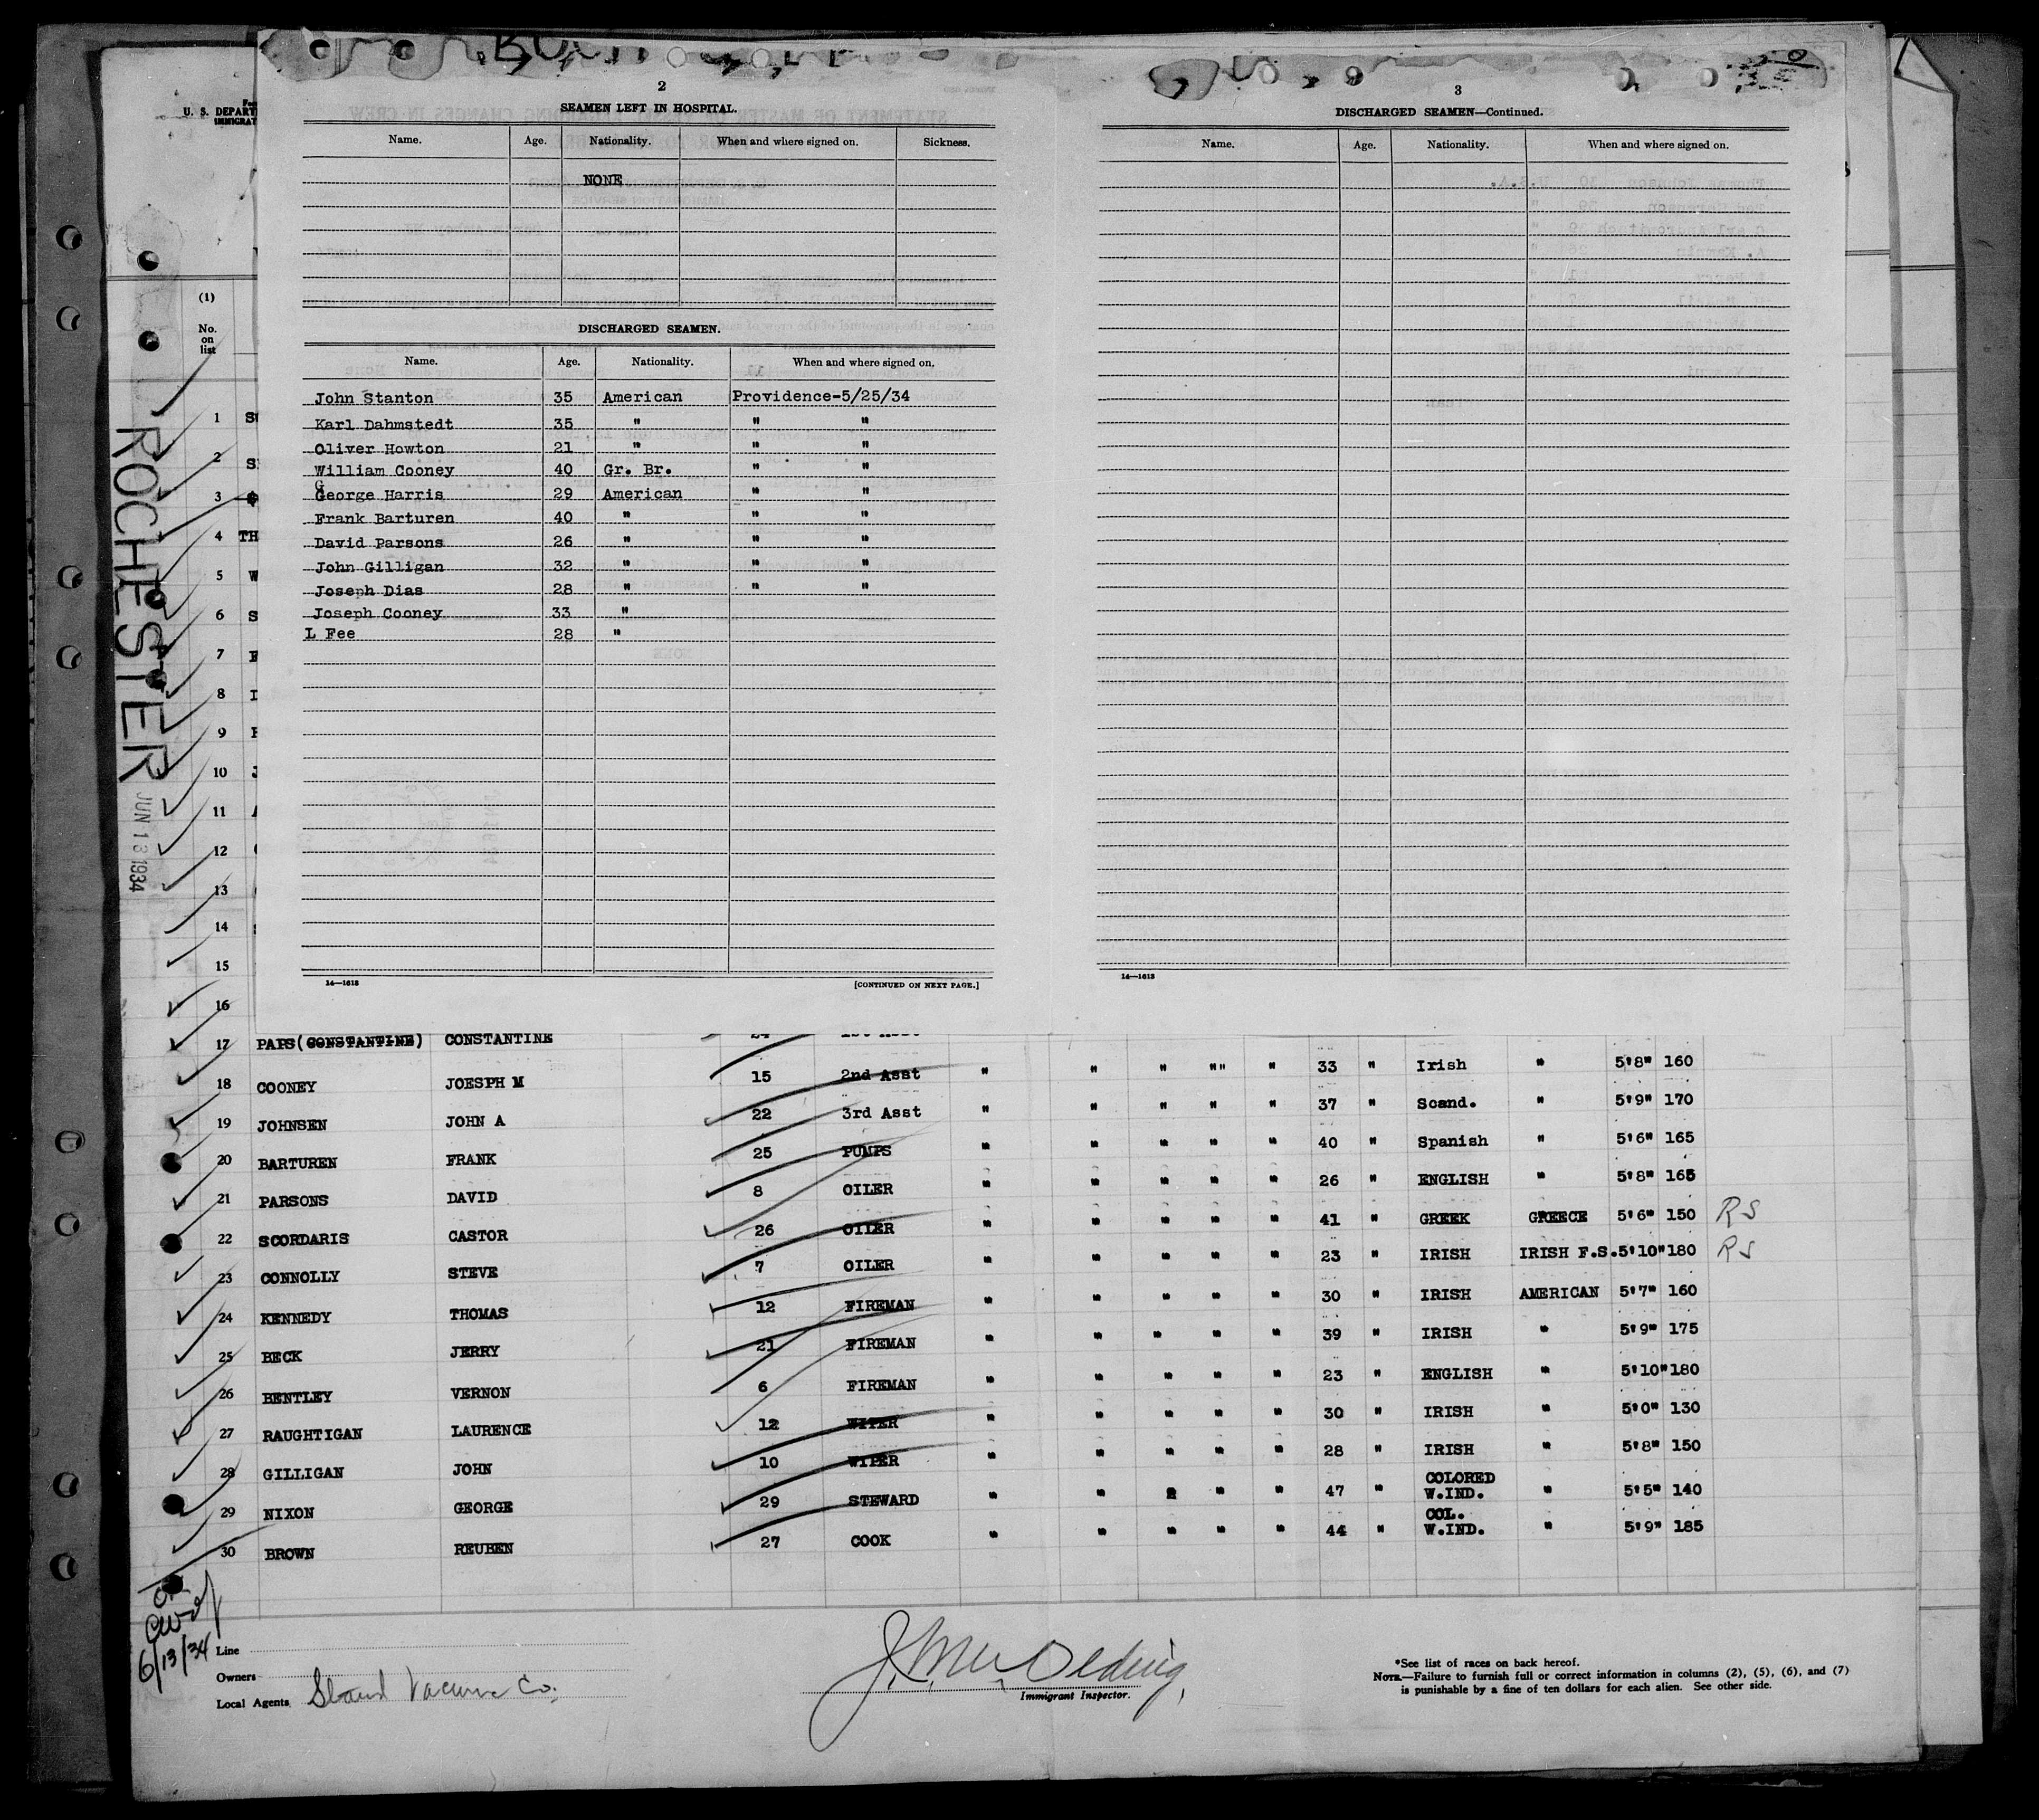 2
SEAMEN LEFT IN HOSPITAL.
Name. Age. Nationality. When and where signed on. Sickness.
NONE
DISCHARGED SEAMEN.
Name. Age. Nationality. When and where signed on.
John Stanton 35 American Providence-5/25/34
Karl Dahmstedt 35 " " "
Oliver Howton 21 " " "
William Cooney 40 Gr. Br. " "
G
George Harris 29 American " "
Frank Barturen 40 " " "
David Parsons 26 " " "
John Gilligan 32 " " "
Joseph Dias 28 " " "
Joseph Cooney 33 "
L Fee 28 "
14—1613 [CONTINUED ON NEXT PAGE.]
3
DISCHARGED SEAMEN—Continued.
Name. Age. Nationality. When and where signed on.
14—1613
U. S. DEPART
IMMIGRAT
(1)
No.
on
list
ROCHESTER
JUN 13 1934
1
2
3
4 TH
5 W
6 S
7
8
9
10
11
12
13
14
15
16
17 PAPS(CONSTANTINE) CONSTANTINE 24 1st Asst
18 COONEY JOESPH M 15 2nd Asst " " " "" " 33 " Irish " 5'8" 160
19 JOHNSEN JOHN A 22 3rd Asst " " " " " 37 " Scand. " 5'9" 170
20 BARTUREN FRANK 25 PUMPS " " " " " 40 " Spanish " 5'6" 165
21 PARSONS DAVID 8 OILER " " " " " 26 " ENGLISH " 5'8" 165
22 SCORDARIS CASTOR 26 OILER " " " " " 41 " GREEK GREECE 5'6" 150 RS
23 CONNOLLY STEVE 7 OILER " " " " " 23 " IRISH IRISH F.S. 5'10" 180 RS
24 KENNEDY THOMAS 12 FIREMAN " " " " " 30 " IRISH AMERICAN 5'7" 160
25 BECK JERRY 21 FIREMAN " " " " " 39 " IRISH " 5'9" 175
26 BENTLEY VERNON 6 FIREMAN " " " " " 23 " ENGLISH " 5'10" 180
27 RAUGHTIGAN LAURENCE 12 WIPER " " " " " 30 " IRISH " 5'0" 130
28 GILLIGAN JOHN 10 WIPER " " " " " 28 " IRISH " 5'8" 150
29 NIXON GEORGE 29 STEWARD " " " " 47 " COLORED W.IND. " 5'5" 140
30 BROWN REUBEN 27 COOK " " " " " 44 " COL. W.IND. " 5'9" 185
6/13/34
Line
Owners
Local Agents Stand Vacuum Co.
Immigrant Inspector.
*See list of races on back hereof.
NOTE.—Failure to furnish full or correct information in columns (2), (5), (6), and (7)
is punishable by a fine of ten dollars for each alien. See other side.